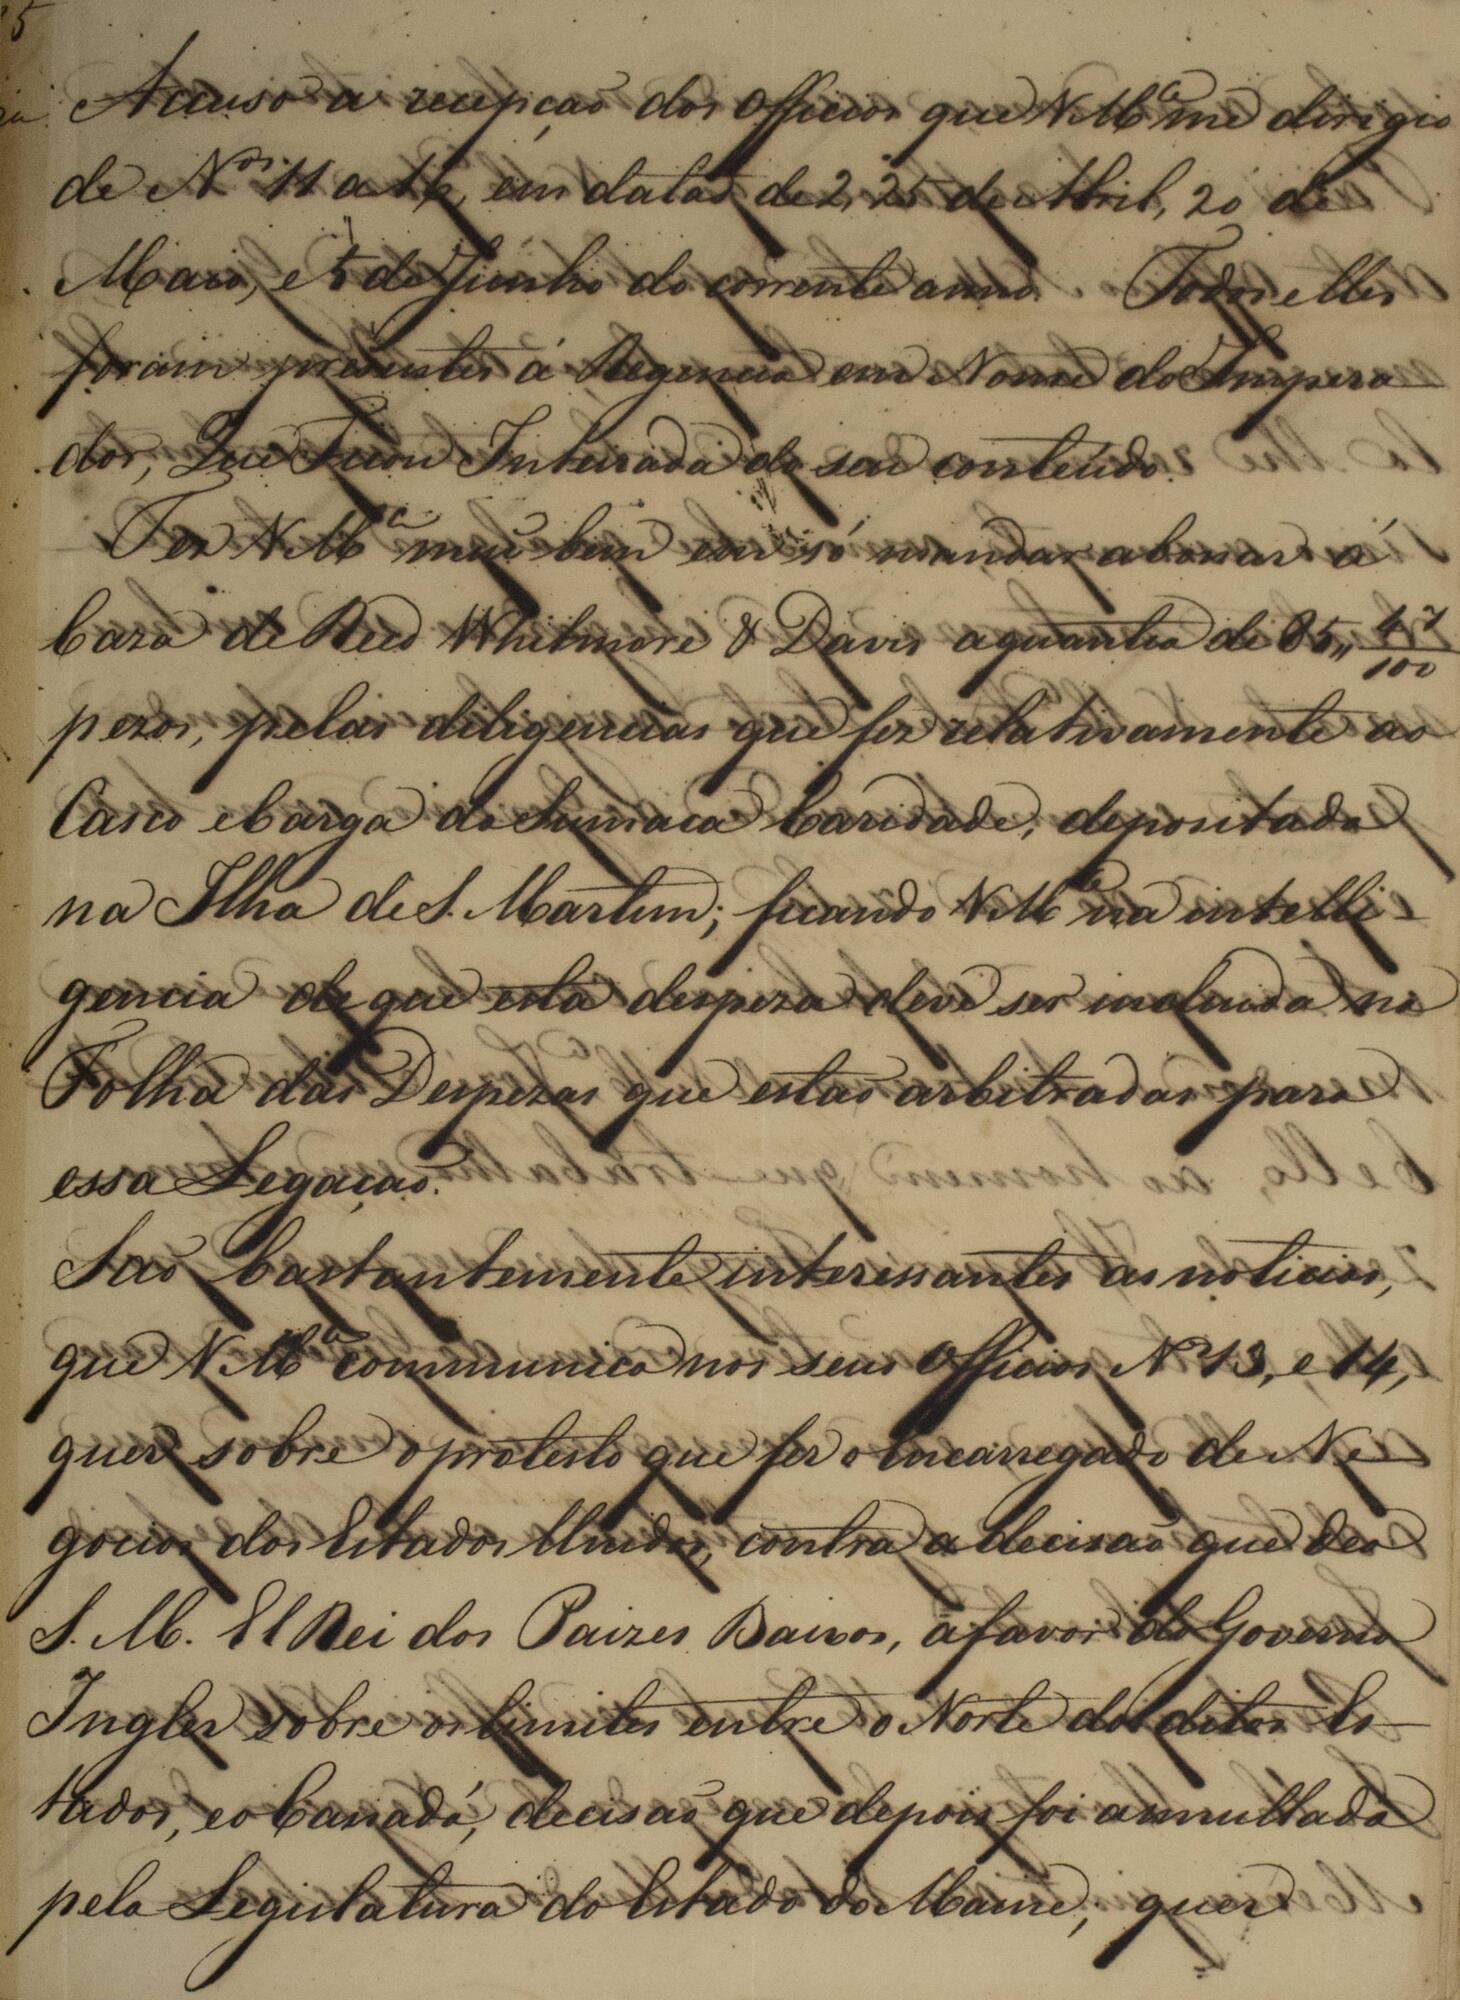 Accuso a recepção dos Officios que V. M.ce me dirigio
de N.os 11 a 16, em datas de 2, 25 de Abril, 20 de
Maio, e 5 de Junho do corrente anno. Todos elles
foram presentes á Regencia em Nome do Impera-
dor, Que Ficou Inteirada do seu conteúdo.
Fez V. M.ce mui bem em só mandar abonar á
Caza de Reed Whitmore & Davis a quantia de 85,, 47/100
pezos, pelas diligencias que fez relativamente ao
Casco e Carga da Sumaca Caridade, depositada
na Ilha de S. Martim; ficando V. M.ce na intelli-
gencia de que esta despeza deve ser incluida na
Folha das Despezas que estão arbitradas para
essa Legação.
São bastantemente interessantes as noticias,
que V. M.ce communica nos seus Officios N.os 13, e 14,
quer sobre o protesto que fez o Encarregado de Ne-
gocios dos Estados Unidos, contra a decisão que deo
S. M. El Rei dos Paizes Baixos, a favor do Governo
Inglez sobre os limites entre o Norte dos ditos Es-
tados, e o Canadá, decisão que depois foi annullada
pela Legislatura do Estado do Maine; quer